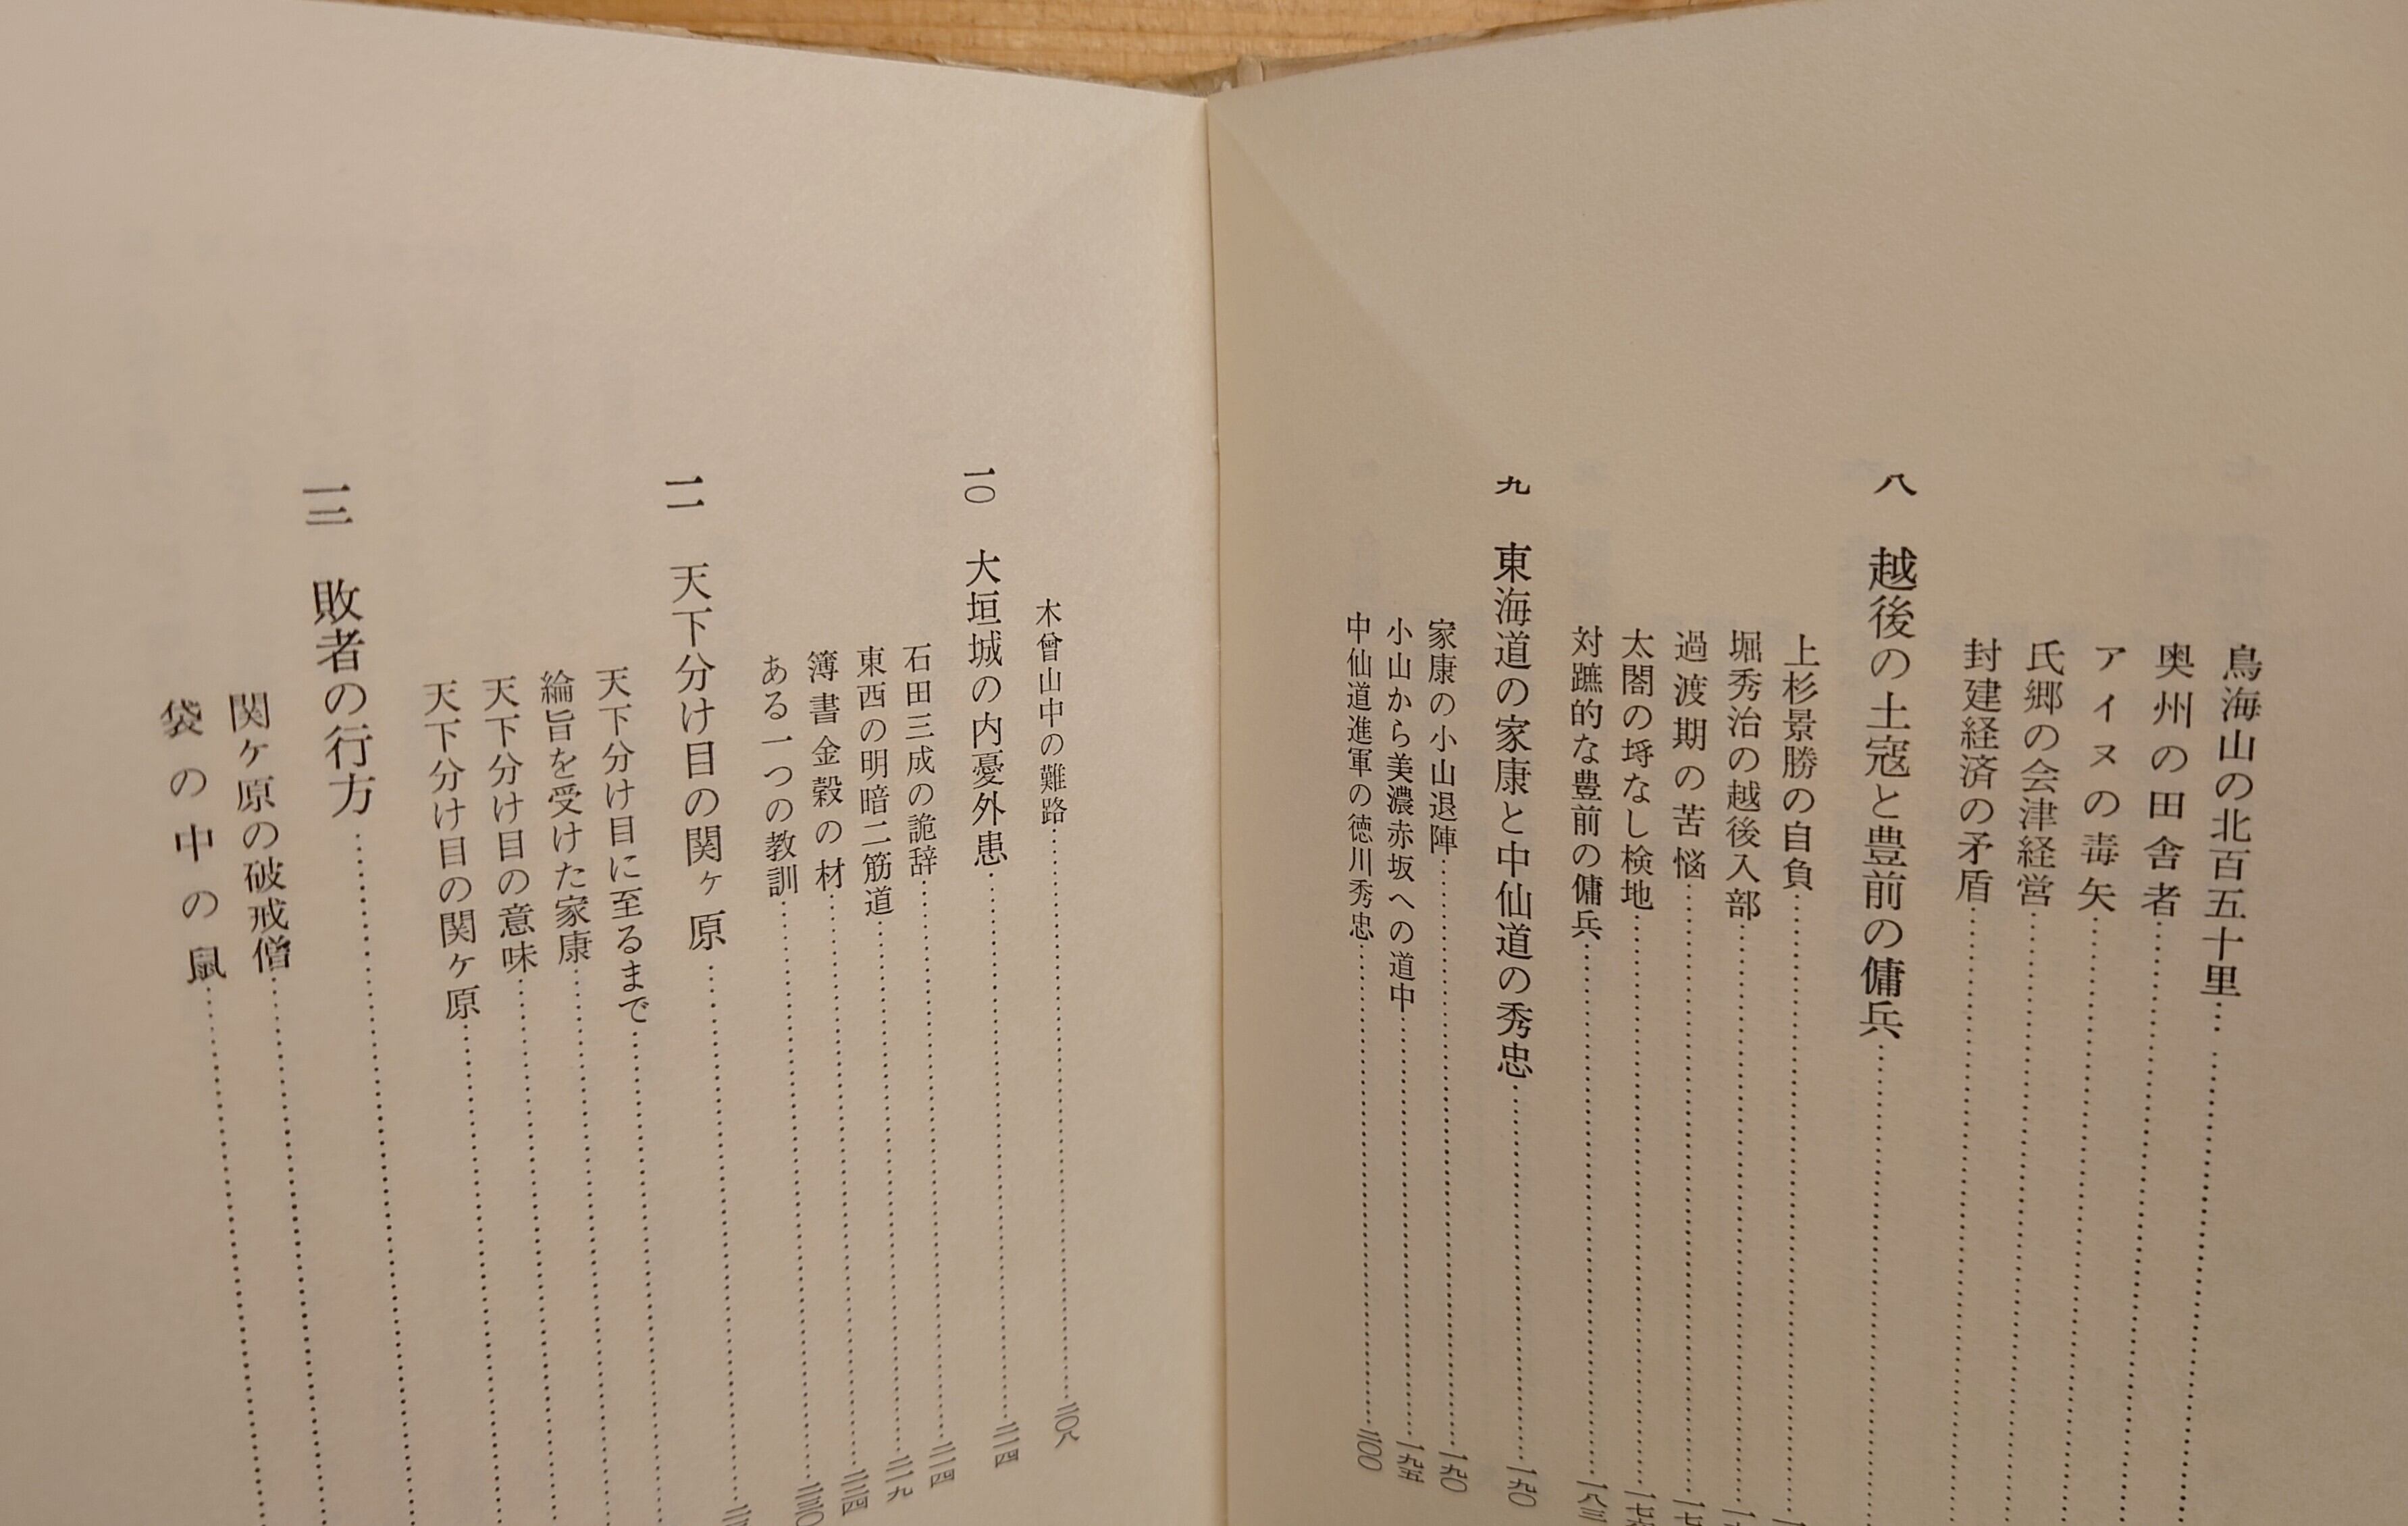 鳥海山の北百五十里
奥州の田舎者
アイヌの毒矢
氏郷の会津経営
封建経済の矛盾
八 越後の土寇と豊前の傭兵
上杉景勝の自負
堀秀治の越後入部
過渡期の苦悩
太閤の埓なし検地
対蹠的な豊前の傭兵 一八三
九 東海道の家康と中仙道の秀忠 一九〇
家康の小山退陣 一九〇
小山から美濃赤坂への道中 一九五
中仙道進軍の徳川秀忠 二〇〇
木曾山中の難路 二〇八
一〇 大垣城の内憂外患 二一四
石田三成の詭辞 二一四
東西の明暗二筋道 二一九
簿書金穀の材 二二四
ある一つの教訓 二三〇
一一 天下分け目の関ヶ原
天下分け目に至るまで
綸旨を受けた家康
天下分け目の意味
天下分け目の関ヶ原
一二 敗者の行方
関ヶ原の破戒僧
袋の中の鼠